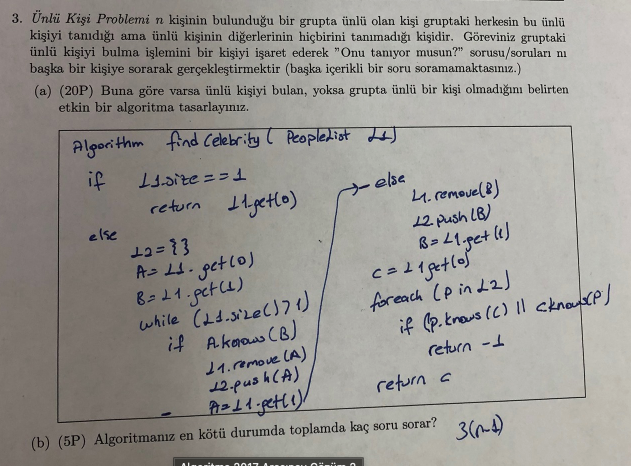 3. Ünlü Kişi Problemi n kişinin bulunduğu bir grupta ünlü olan kişi gruptaki herkesin bu ünlü
kişiyi tanıdığı ama ünlü kişinin diğerlerinin hiçbirini tanımadığı kişidir. Göreviniz gruptaki
ünlü kişiyi bulma işlemini bir kişiyi işaret ederek "Onu tanıyor musun?" sorusu/soruları nı
başka bir kişiye sorarak gerçekleştirmektir (başka içerikli bir soru soramamaktasınız.)
(a) (20P) Buna göre varsa ünlü kişiyi bulan, yoksa grupta ünlü bir kişi olmadığını belirten
etkin bir algoritma tasarlayınız.
Algorithm find Celebrity ( PeopleList L1)
if L1.size == 1
return L1.get(0)
else
L2 = { }
A = L1. get(0)
B = L1. get(1)
while (L1.size() > 1)
if A.knows (B)
L1.remove (A)
L2.push (A)
A = L1.get(1)
else
L1.remove(B)
L2.push(B)
B = L1.get(1)
C = L1 get(0)
foreach (p in L2)
if (p.knows (C) || c.knows(P)
return -1
return c
(b) (5P) Algoritmanız en kötü durumda toplamda kaç soru sorar? 3(n-1)